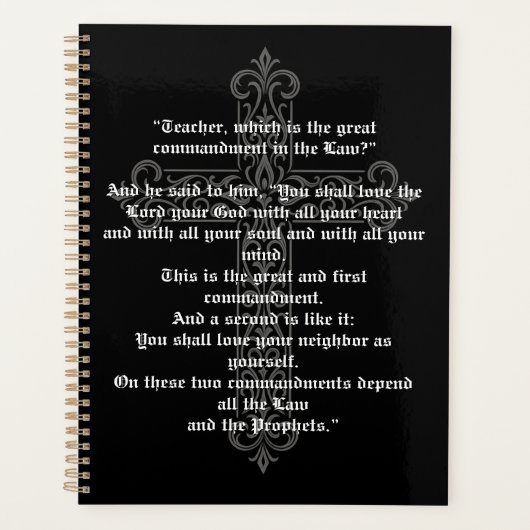 “Teacher, which is the great
commandment in the Law?”
And he said to him, “You shall love the
Lord your God with all your heart
and with all your soul and with all your
mind.
This is the great and first
commandment.
And a second is like it:
You shall love your neighbor as
yourself.
On these two commandments depend
all the Law
and the Prophets.”